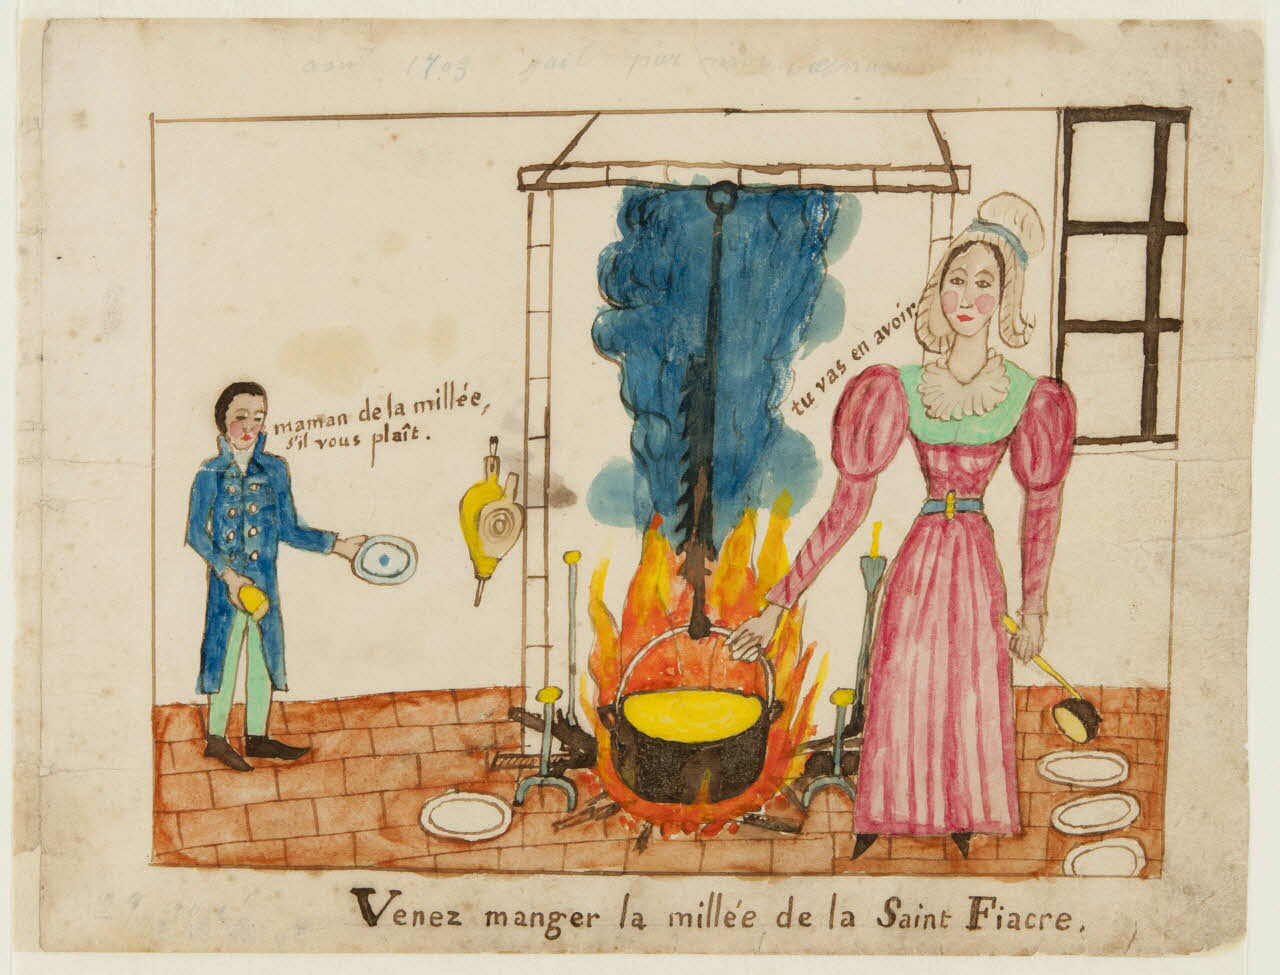 1703
maman de la millée,
s'il vous plaît.
tu vas en avoir
Venez manger la millée de la Saint Fiacre.